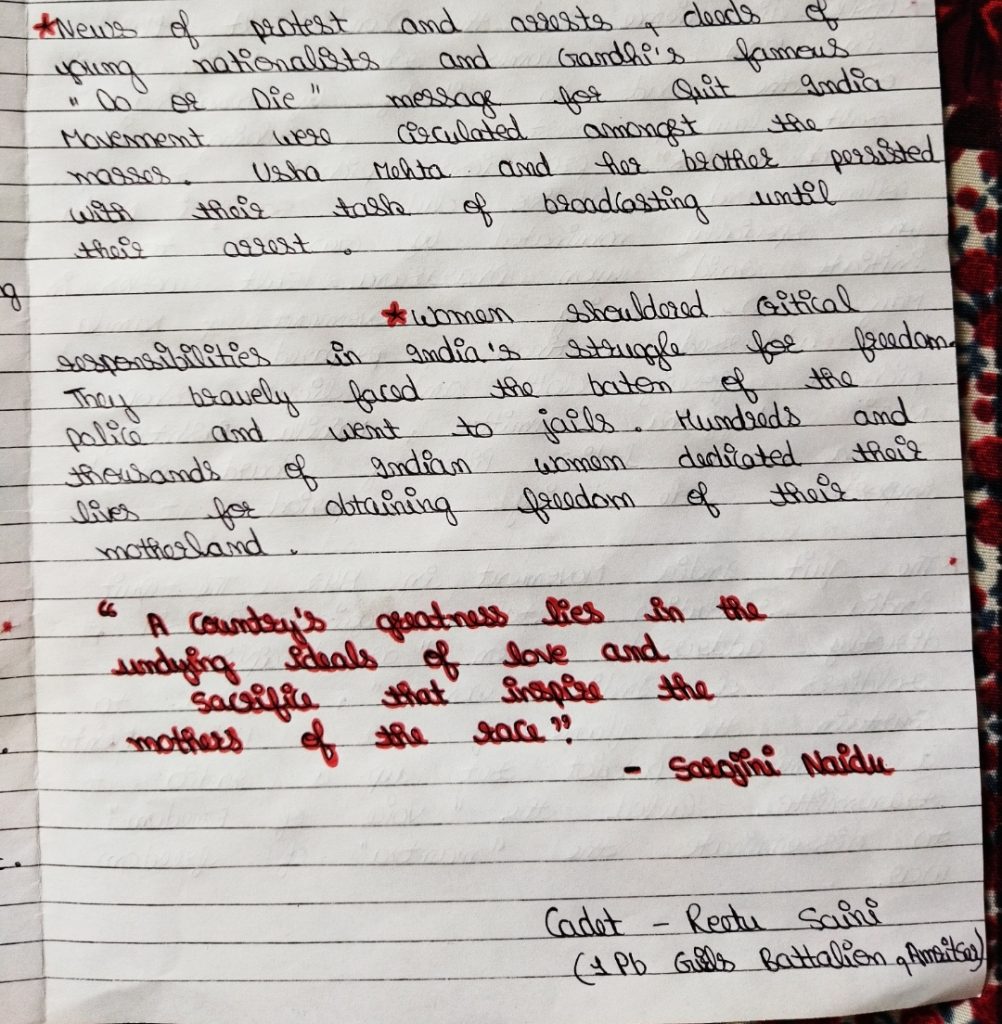 *News of protest and arrests, deeds of
young nationalists and Gandhi's famous
"Do or Die" message for Quit India
Movement were circulated amongst the
masses. Usha Mehta and her brother persisted
with their task of broadcasting until
their arrest.
*Women shouldered critical
responsibilities in India's struggle for freedom.
They bravely faced the baton of the
police and went to jails. Hundreds and
thousands of Indian women dedicated their
lives for obtaining freedom of their
motherland.
"A Country's greatness lies in the
undying ideals of love and
sacrifice that inspire the
mothers of the race".
- Sarojini Naidu
Cadet - Reetu Saini
(1 Pb Girls Battalion, Amritsar)